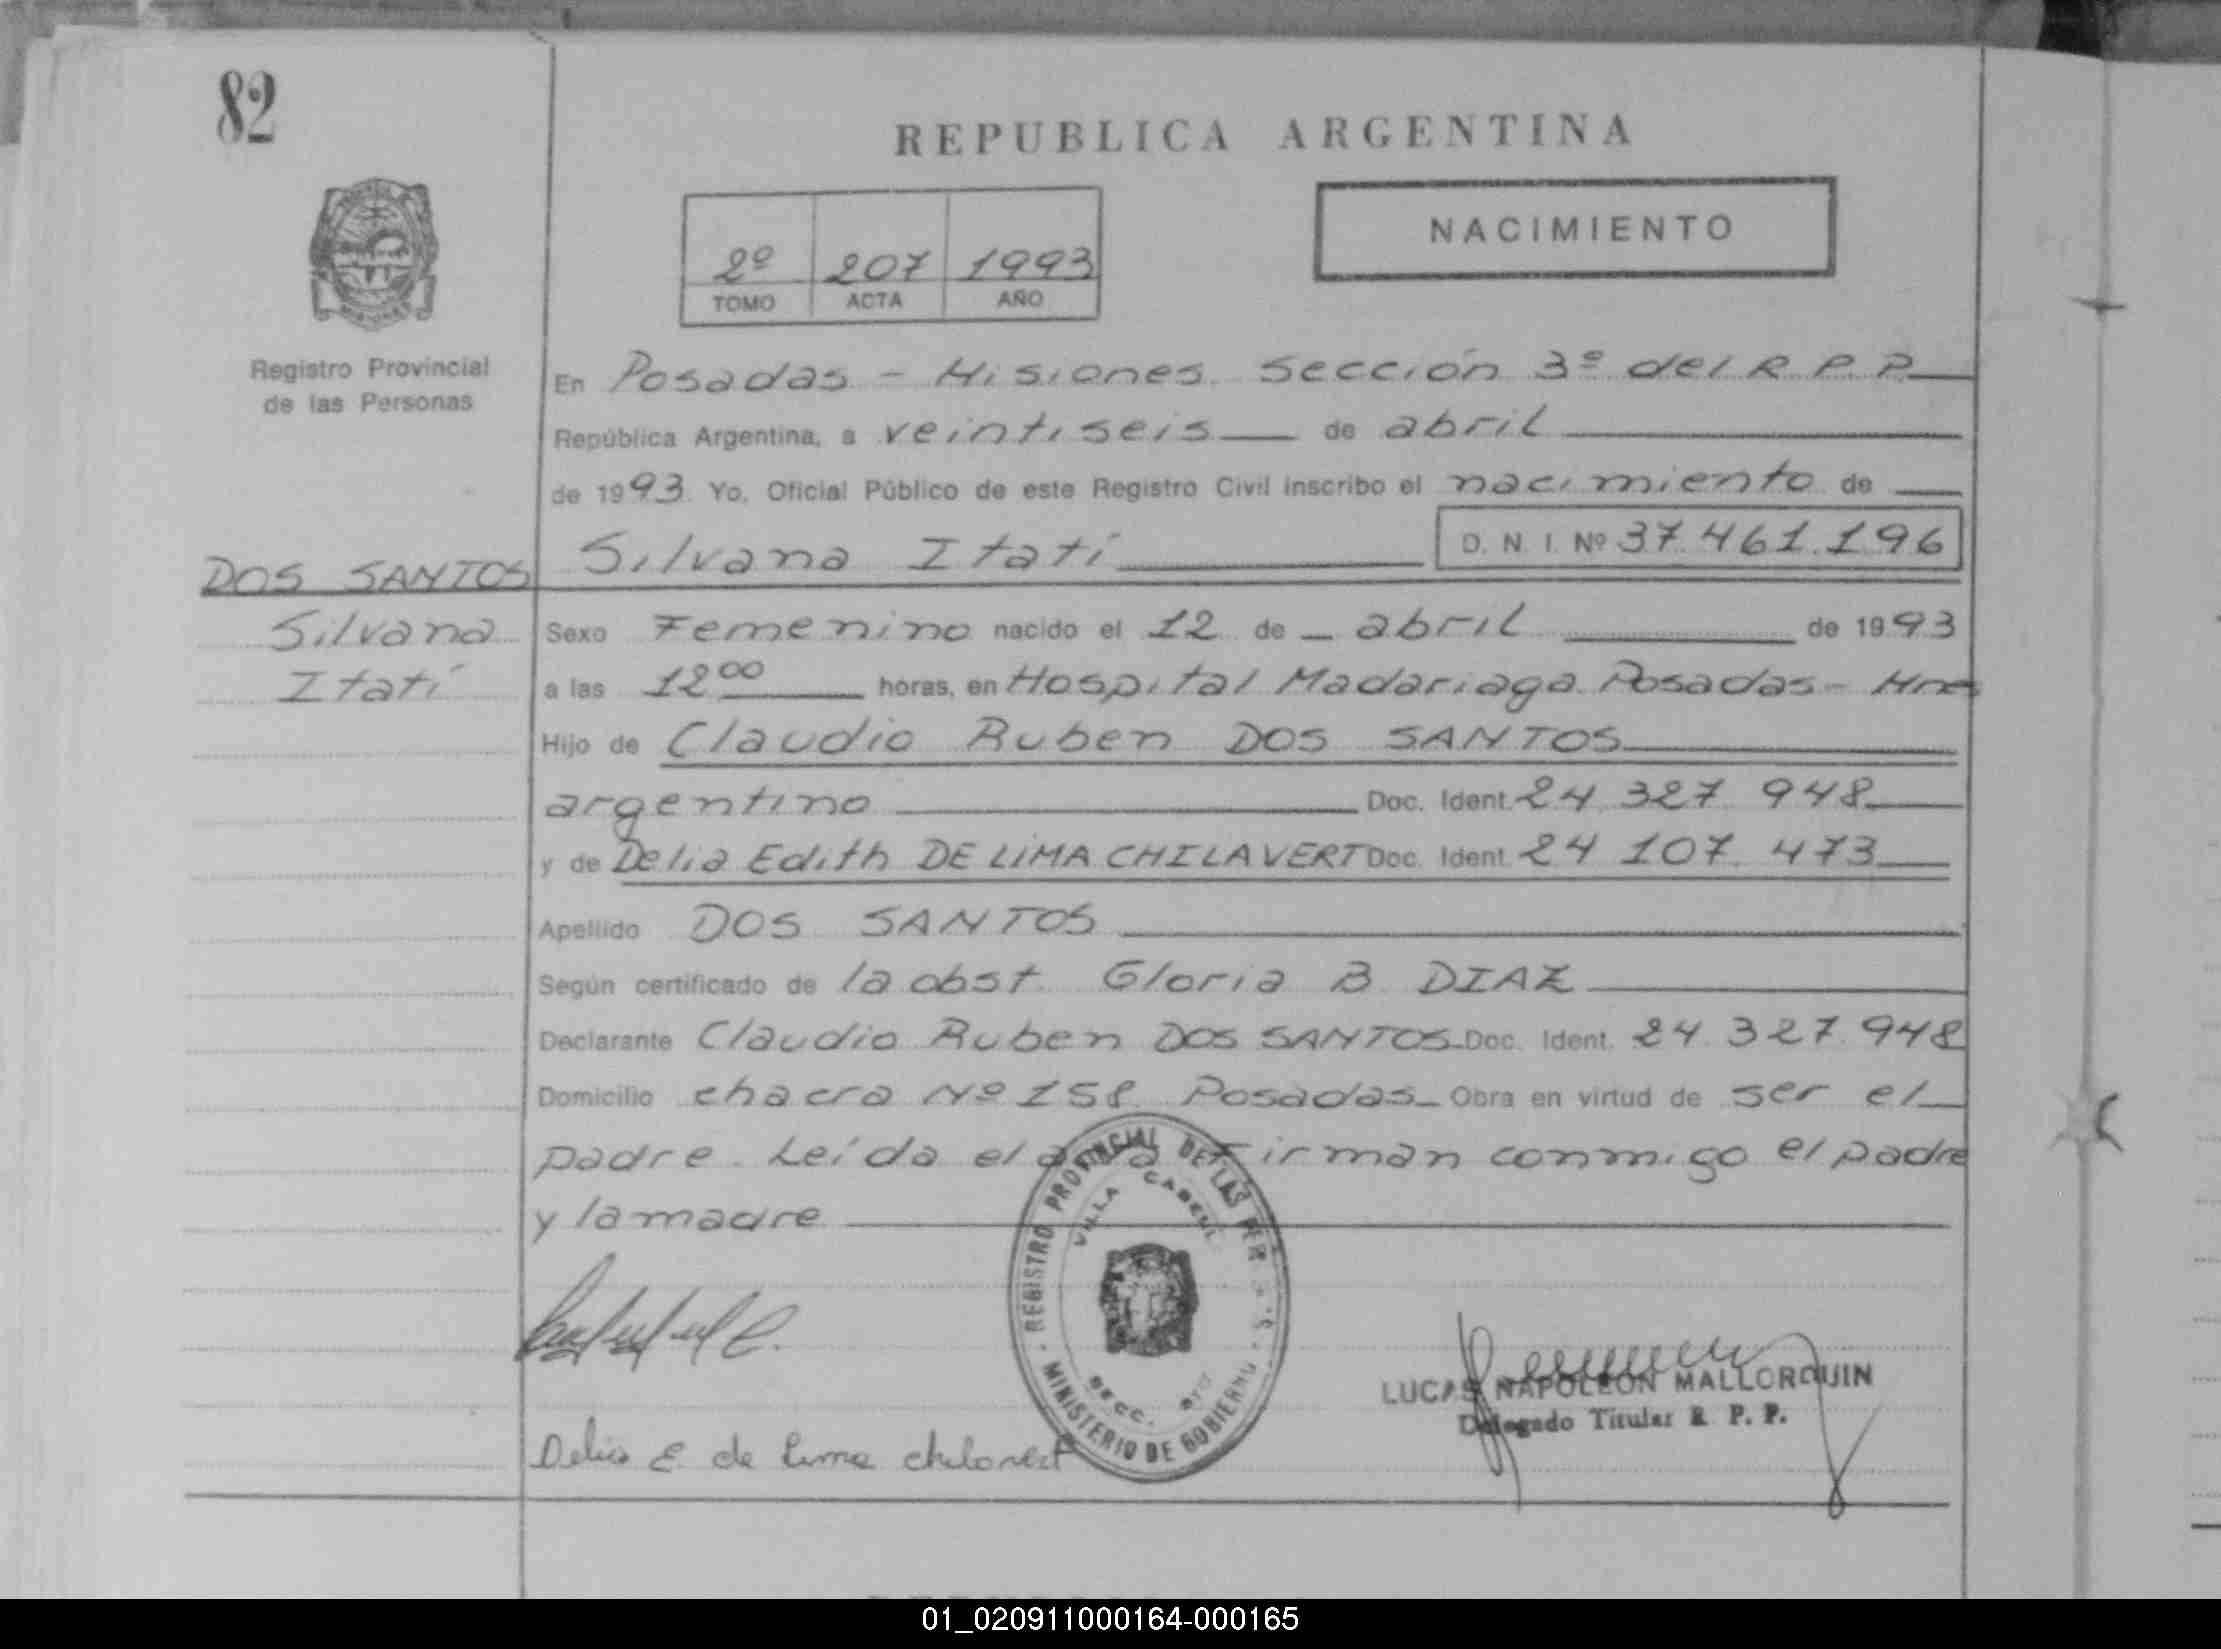 82
REPUBLICA ARGENTINA
NACIMIENTO
2º 207 1993
TOMO ACTA AÑO
Registro Provincial
de las Personas
En Posadas - Misiones. Sección 3º del R. P. P.
República Argentina, a veintiseis de abril
de 1993. Yo, Oficial Público de este Registro Civil inscribo el nacimiento de
Silvana Itatí D. N. I. Nº 37.461.196
DOS SANTOS
Silvana
Itatí
Sexo Femenino nacido el 12 de abril de 1993
a las 12 00 horas, en Hospital Madariaga. Posadas - Mnes
Hijo de Claudio Ruben DOS SANTOS
argentino Doc. Ident. 24.327.948
y de Delia Edith DE LIMA CHILAVERT Doc. Ident. 24.107.473
Apellido DOS SANTOS
Según certificado de la obst. Gloria B. DIAZ
Declarante Claudio Ruben DOS SANTOS Doc. Ident. 24.327.948
Domicilio chacra Nº 158. Posadas Obra en virtud de ser el
padre. Leída el acta firman conmigo el padre
y la madre
REGISTRO PROVINCIAL DE LAS PER
VILLA CABELL
SECC.
MINISTERIO DE GOBIERNO
LUCAS NAPOLEON MALLORQUIN
Delegado Titular R. P. P.
Delia E. de Lima chilavert
01_020911000164-000165